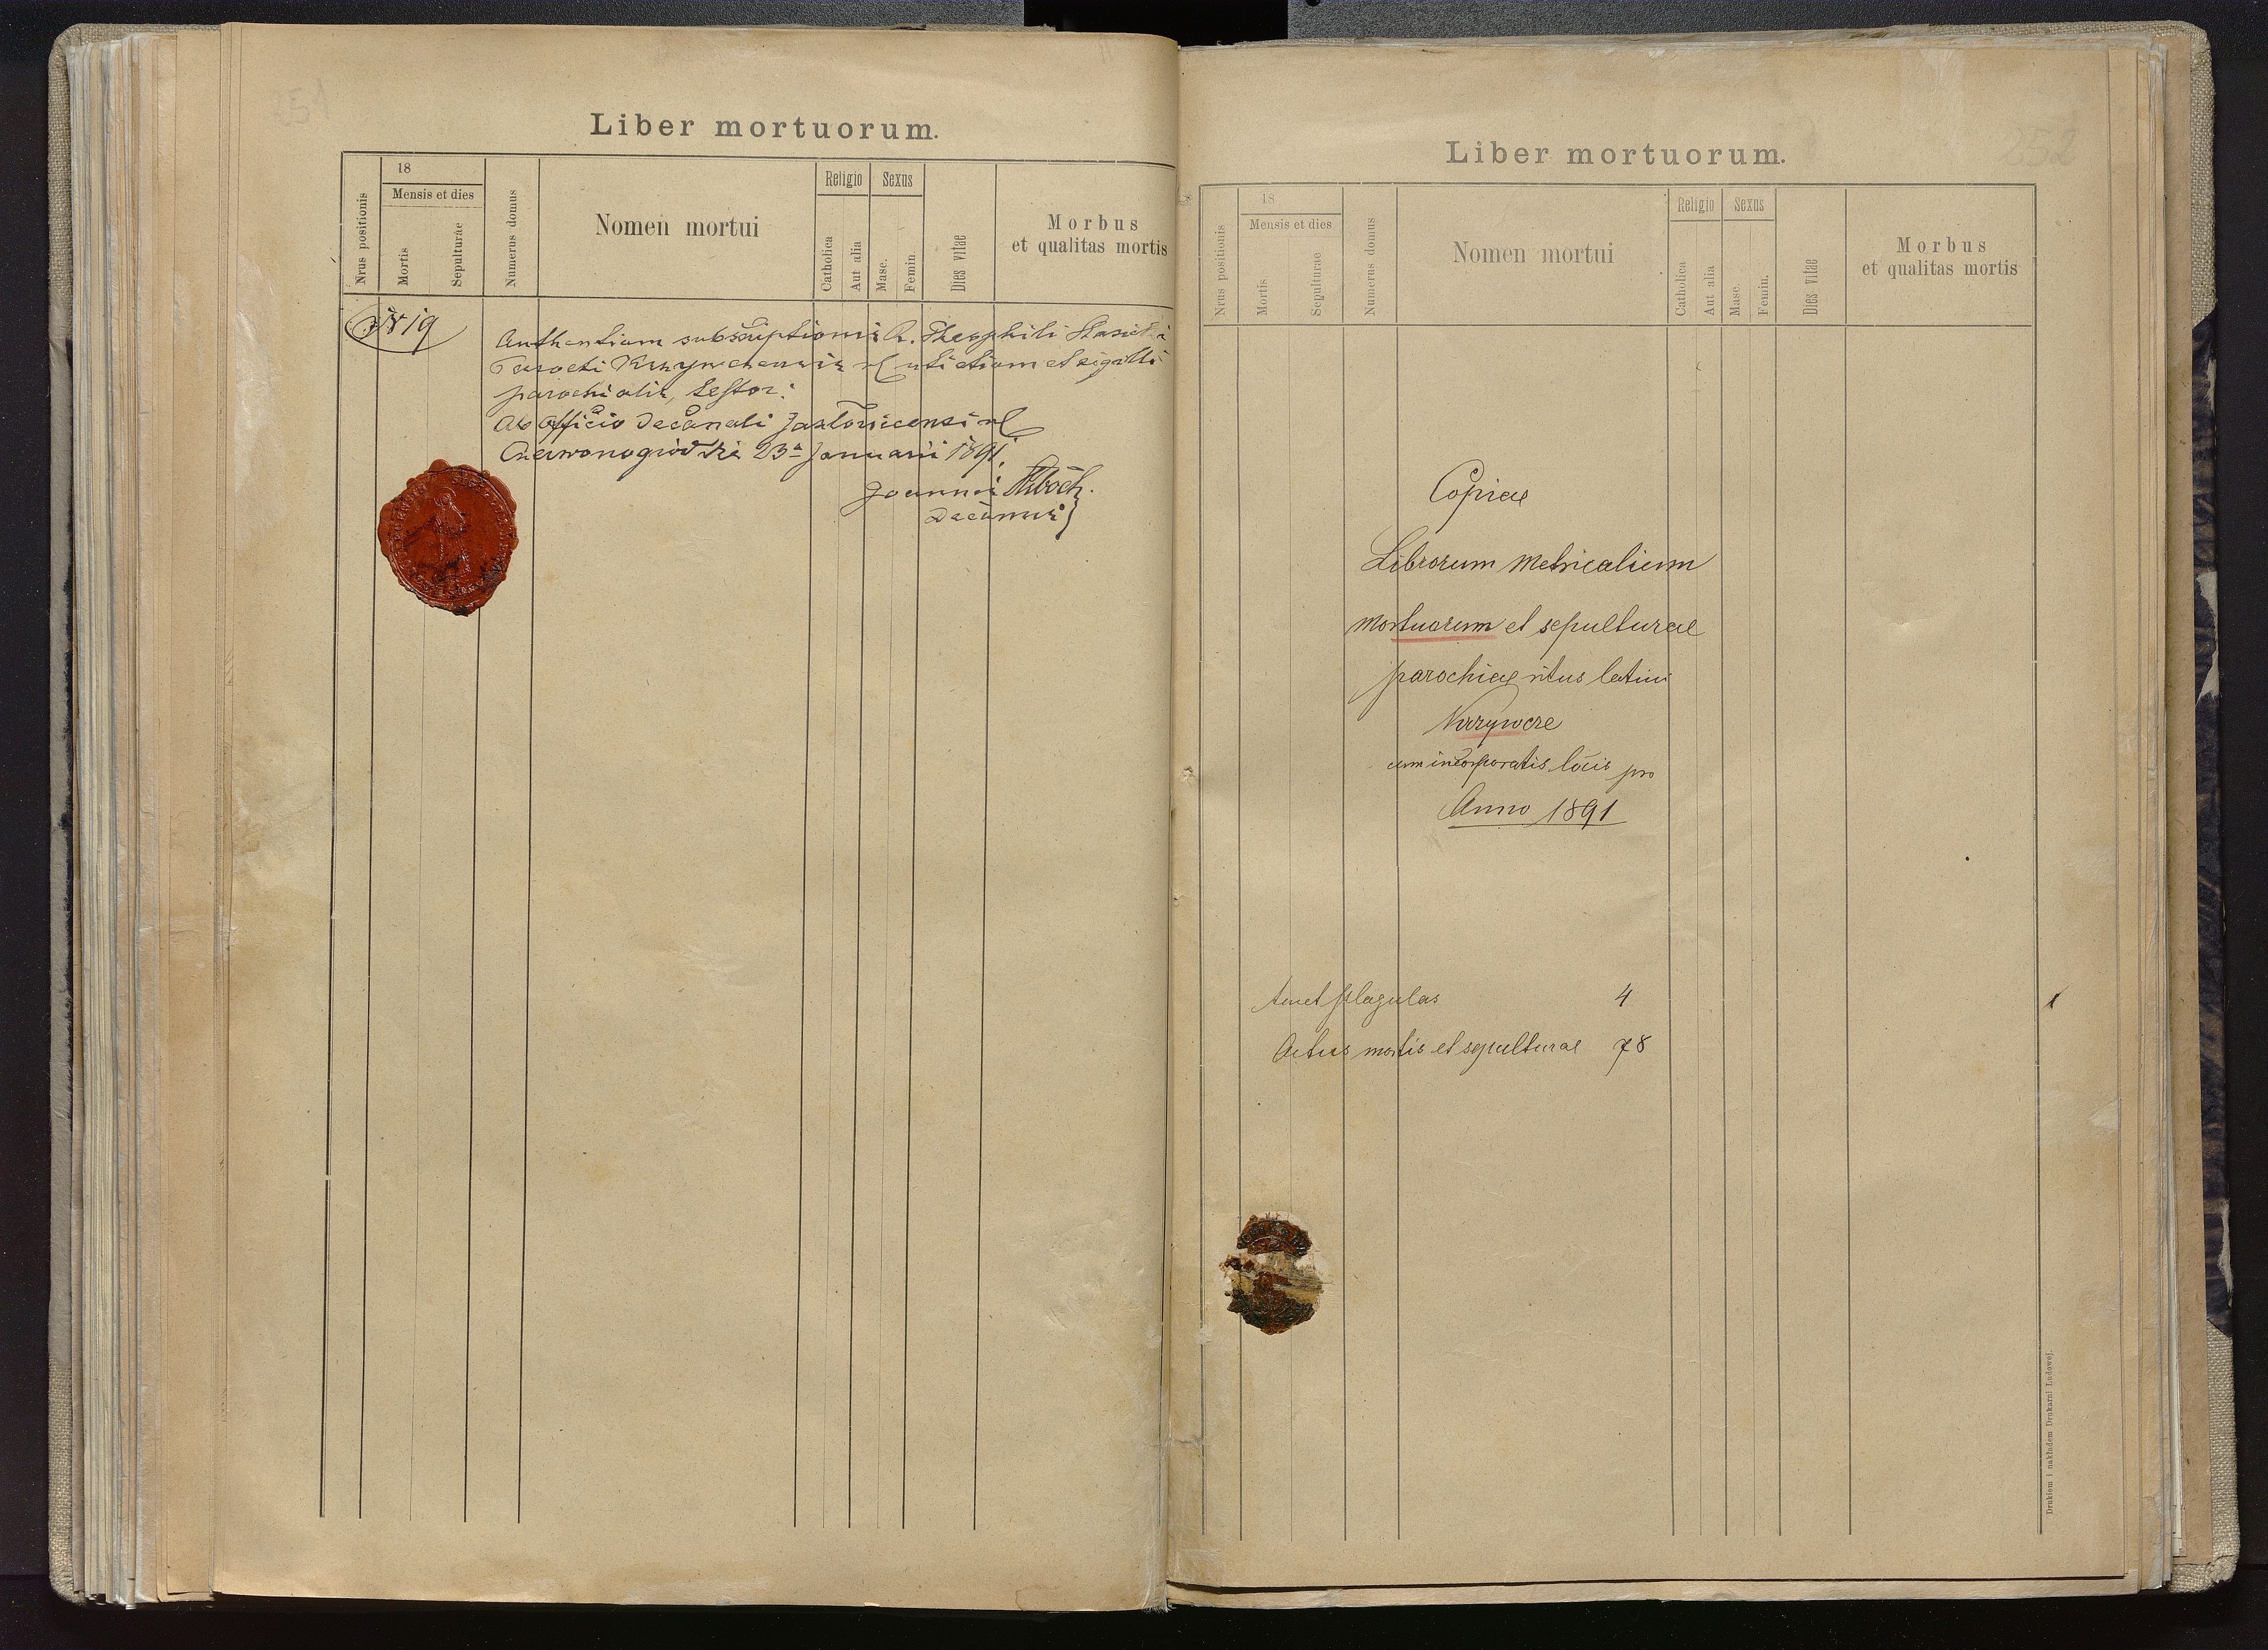 251
Liber mortuorum.
Nrus positionis
18
Mensis et dies
Mortis
Sepulturæ
Numerus domus
Nomen mortui
Religio
Catholica
Aut alia
Sexus
Masc.
Femin
Dies vitae
Morbus
et qualitas mortis
19
Authentiam subscriptionis R. Theophili
Parochi uti etiam et sigilli
parochialis, testor:
Ab Officio Decanali Jazłovicensi
Czerwonogród die 23ª Januarii 1891
Joannes
Decanus
252
Liber mortuorum.
Nrus positionis
18
Mensis et dies
Mortis
Sepulturae
Numerus domus
Nomen mortui
Religio
Catholica
Aut alia
Sexus
Masc.
Femin.
Dies vitae
Morbus
et qualitas mortis
Copiae
Librorum Metricalium
mortuorum et sepulturae
parochiae ritus latini
cum incorporatis locis pro
Anno 1891
tenet plagulas 4
Actus mortis et sepulturae 78
Drukiem i nakładem Drukarni Ludowej.